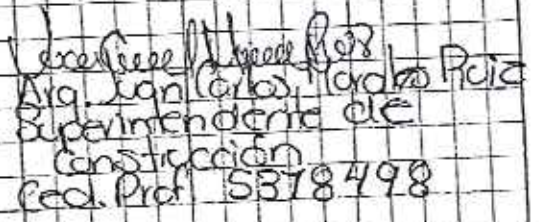 Arq. Juan Carlos Ruiz
Superintendente de
Construcción
Ced. Prof 5378498